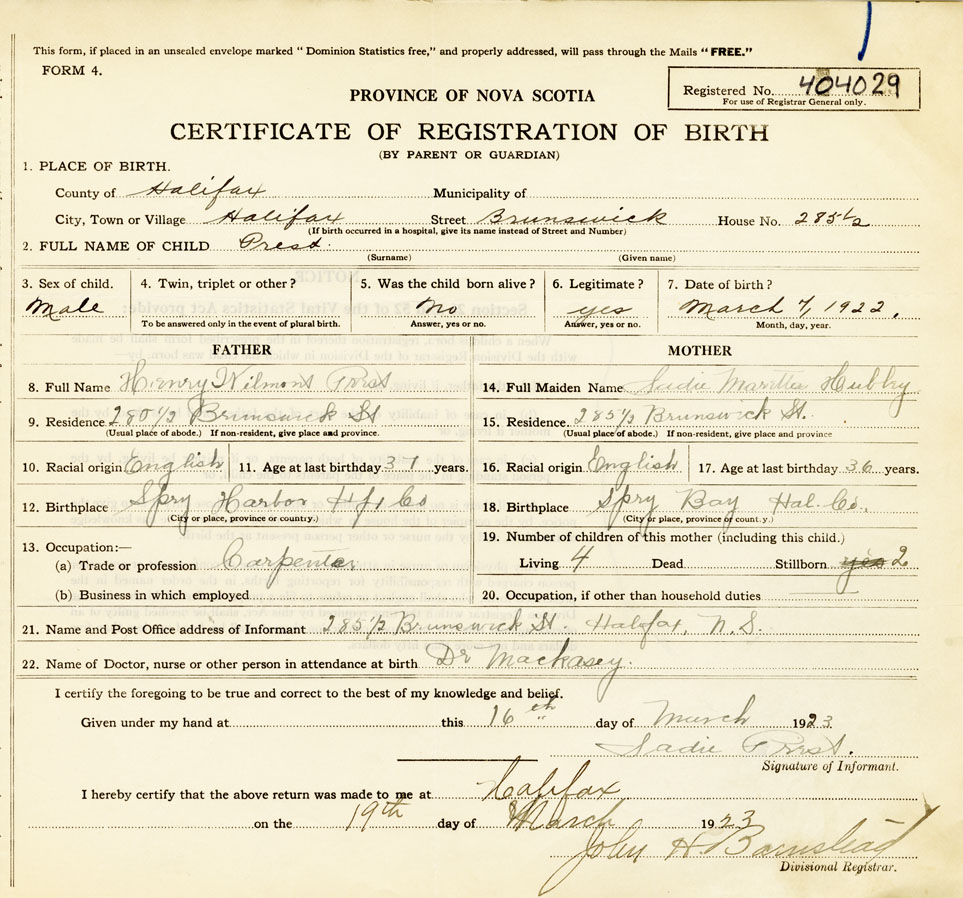 This form, if placed in an unsealed envelope marked "Dominion Statistics free," and properly addressed, will pass through the Mails "FREE."
FORM 4.
Registered No. 404029
For use of Registrar General only.
PROVINCE OF NOVA SCOTIA
CERTIFICATE OF REGISTRATION OF BIRTH
(BY PARENT OR GUARDIAN)
1. PLACE OF BIRTH.
County of Halifax Municipality of
City, Town or Village Halifax Street Brunswick House No. 285½
(If birth occurred in a hospital, give its name instead of Street and Number)
2. FULL NAME OF CHILD Prest.
(Surname) (Given name)
3. Sex of child. 4. Twin, triplet or other? 5. Was the child born alive? 6. Legitimate? 7. Date of birth?
Male No yes March 7, 1922.
To be answered only in the event of plural birth. Answer, yes or no. Answer, yes or no. Month, day, year.
FATHER MOTHER
8. Full Name Henry Wilmont Prest 14. Full Maiden Name Sadie
9. Residence 280½ Brunswick St 15. Residence. 285½ Brunswick St.
(Usual place of abode.) If non-resident, give place and province. (Usual place of abode.) If non-resident, give place and province
10. Racial origin English 11. Age at last birthday 31 years. 16. Racial origin English 17. Age at last birthday 36 years.
12. Birthplace Spry Harbor Hfx Co 18. Birthplace Spry Bay Hal. Co.
(City or place, province or country.) (City or place, province or count.y.)
13. Occupation:— 19. Number of children of this mother (including this child.)
(a) Trade or profession Carpenter Living 4 Dead Stillborn yes 2
(b) Business in which employed 20. Occupation, if other than household duties
21. Name and Post Office address of Informant 285½ Brunswick St. Halofax, N.S.
22. Name of Doctor, nurse or other person in attendance at birth Dr Mackasey.
I certify the foregoing to be true and correct to the best of my knowledge and belief.
Given under my hand at this 16th day of March 1923
Sadie Prest.
Signature of Informant.
I hereby certify that the above return was made to me at Halifax
on the 19th day of March 1923
John H Barnstead
Divisional Registrar.